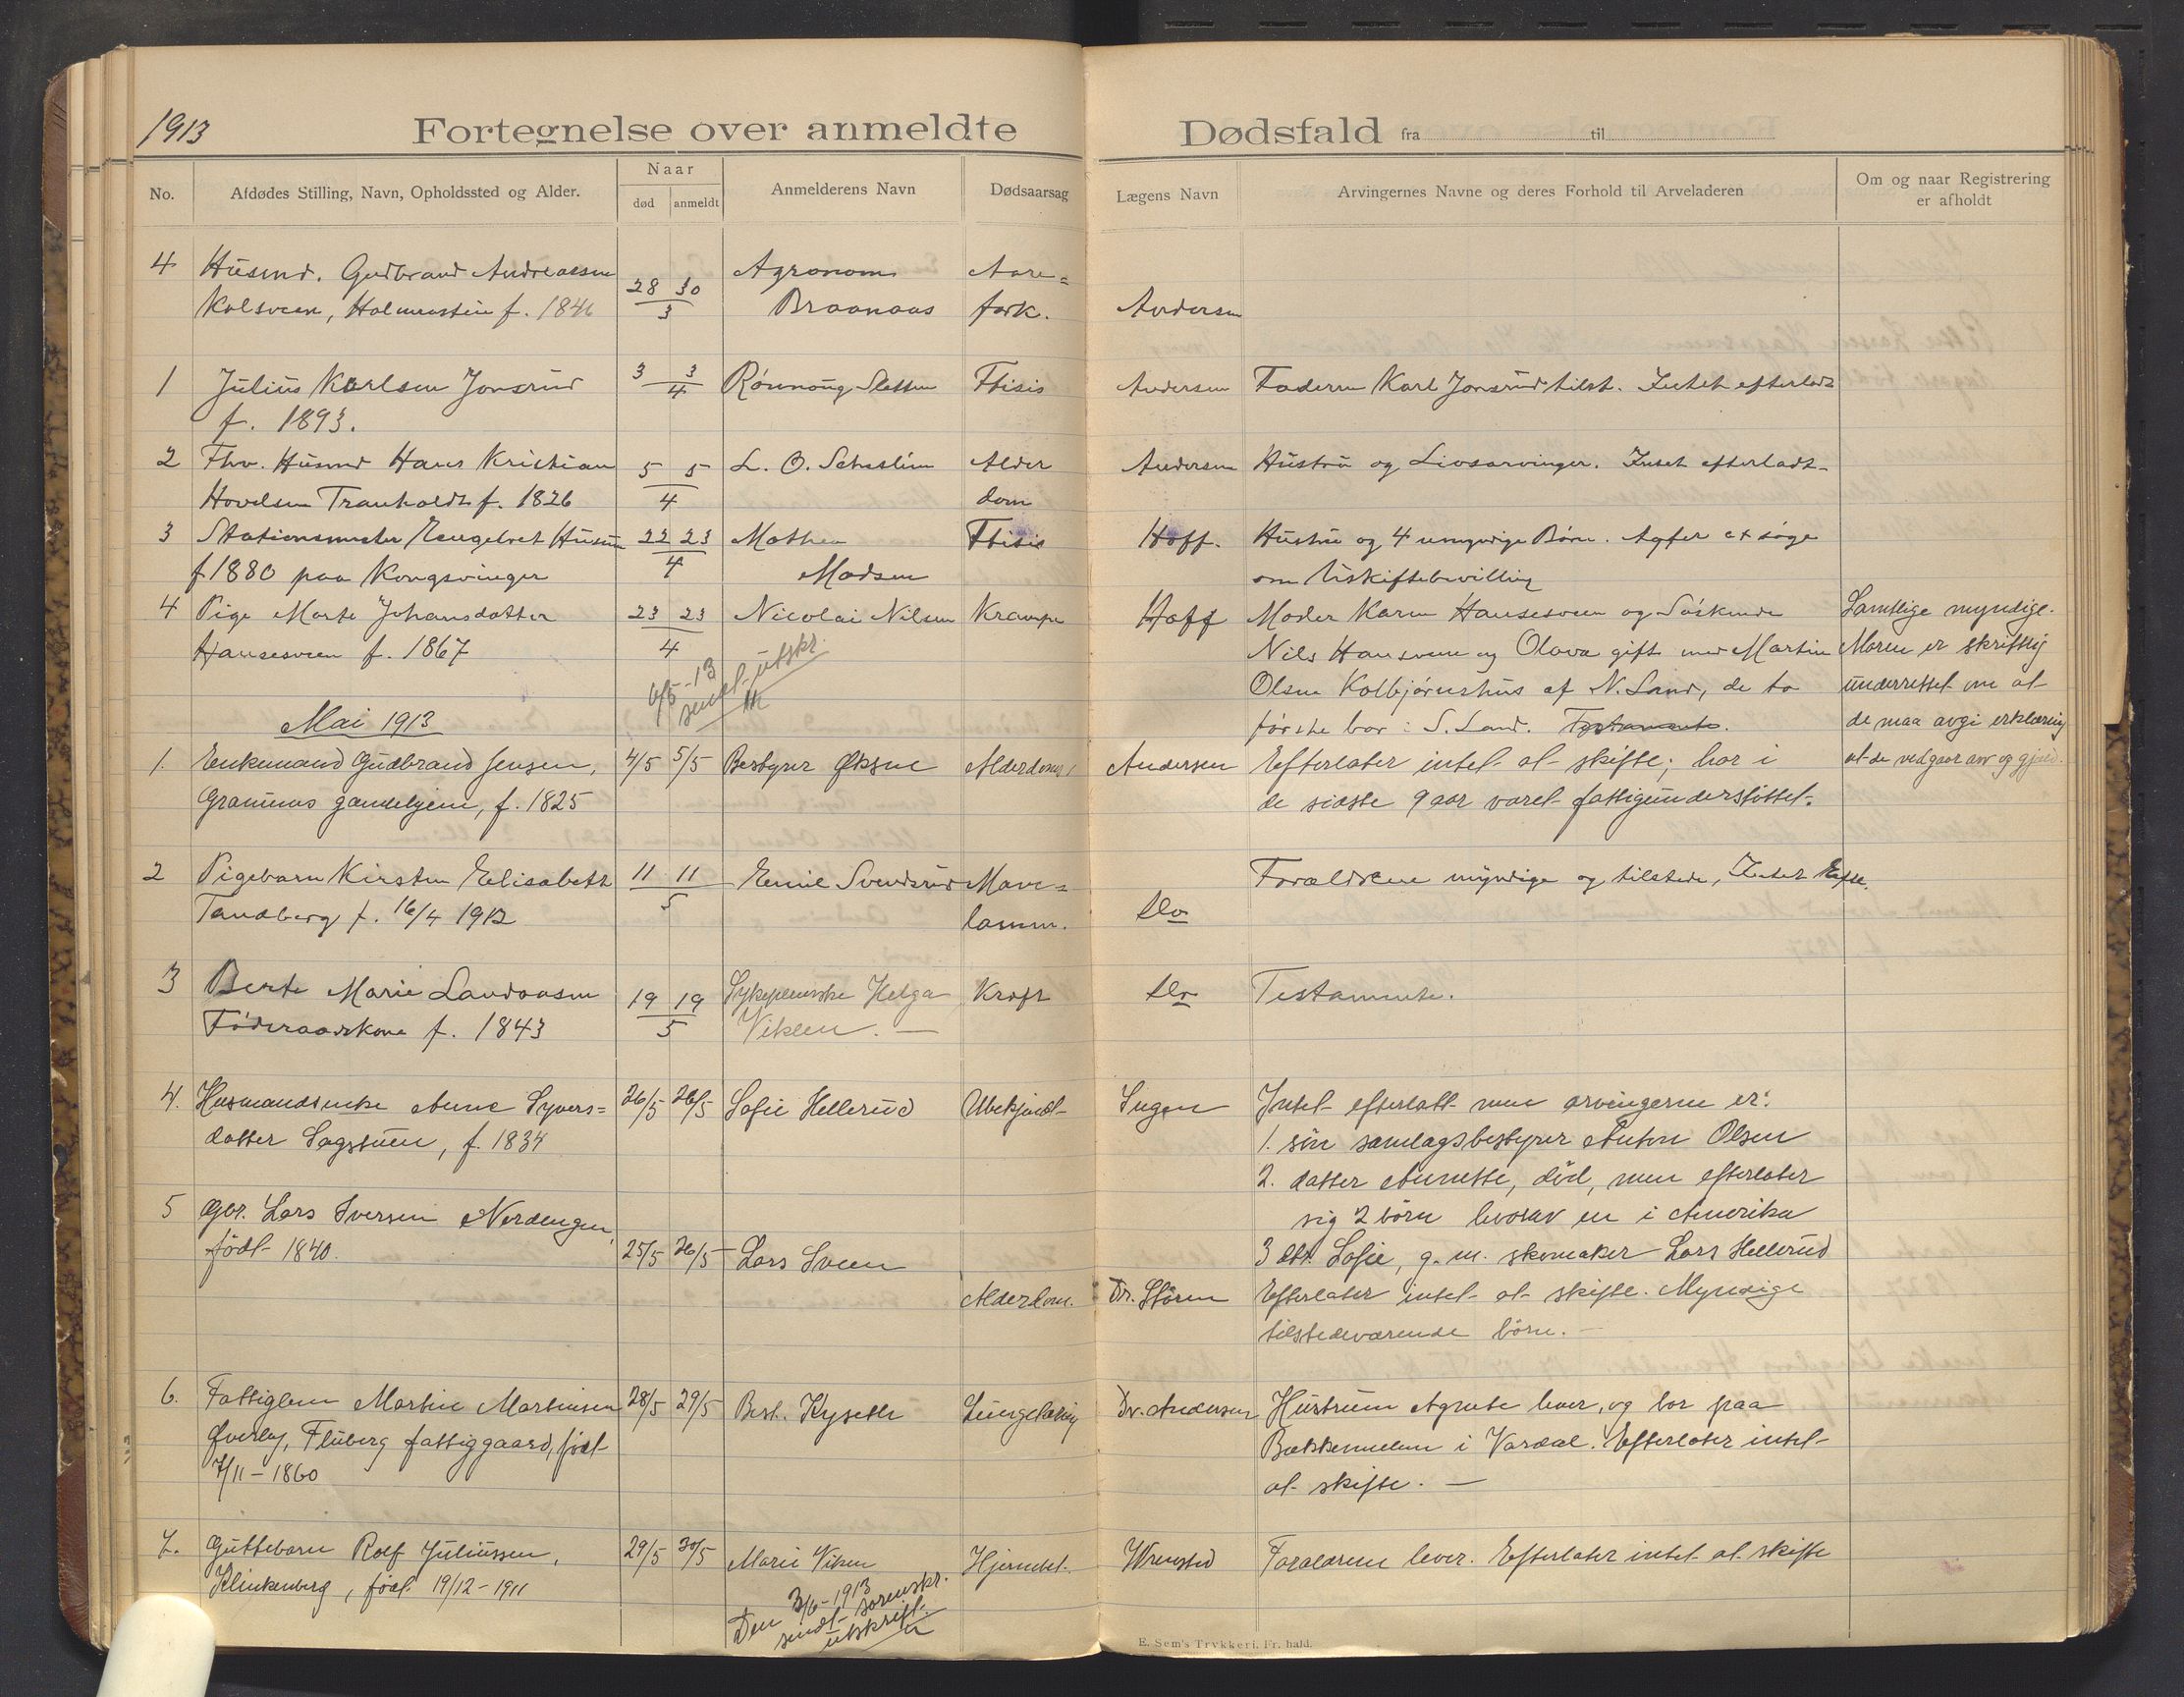 1913
Fortegnelse over anmeldte Dødsfald fra til
No.
Afdødes Stilling, Navn, Opholdssted og Alder.
Naar
død anmeldt
Anmelderens Navn
Dødsaarsag
Lægens Navn
Arvingernes Navne og deres Forhold til Arveladeren
Om og naar Registrering
er afholdt
4 Husmd. Gudbrand Andreassen 28 30 Agronom Aare=
Kolsveen, f. 1846 3 Braanaas fork. Andersen
1 Julius Karlsen Jonsrud 3 3 Rønnoug Sletten Ftisis Andersen Faderen Karl Jonsrud tilst. Intet efterladt
f. 1893. 4
2 Fhv. Husmd Hans Kristian 5 5 L. O. Alder Andersen Hustru og Livsarvinger. Intet efterladt
Hovelsen f. 1826 4 dom
3 Stationsmester Engebret 22 23 Mathea Ftisis Hoff. Hustru og 4 umyndige Børn. Agter at søge
f 1880 paa Kongsvinger 4 Madsen om Uskiftebevilling
4 Pige Marte Johansdatter 23 23 Nicolai Nilsen Krampe Hoff Moder Karen Hansesveen og Søskende Samtlige myndige.
Hansesveen f. 1867 4 Nils Hansveen og Olava gift med Martin Moren er skriftlig
6/5-13
sendt utskr.
Olsen Kolbjørnshus af N. Land, de to underrettet om at
første bor i S. Land. Testamente. de maa avgi erklæring
Mai 1913
1. Enkemand Gudbrand Jensen, 4/5 5/5 Bestyrer Øksne Alderdom Andersen Efterlater intet at skifte; har i at de vedgaar arv og gjæld.
Grannes gamlehjem, f. 1825 de sidste 9 aar været fattigunderstøttet.
2 Pigebarn Kirsten Elisabeth 11 11 Emil Svendsrud Mave= Forældrene myndige og tilstede, Intet Efte.
Tandberg f. 16/4 1912 5 lamm. Do
3 Berte Marie Landaasen 19 19 Sykepleierske Helga Kræft Do Testamente.
Føderaadskone f. 1843 5 Viken. —
4. Husmandsenke Anne Syvers= 26/5 26/5 Sofie Hellerud Ubekjendt Intet efterlatt men arvingerne er:
datter Sagstuen, f. 1834 1. søn samlagsbestyrer Anton Olsen
2. datter Annette, død, men efterlater
sig 2 børn hvorav en i Amerika
5 Gbr. Lars Iversen Nordengen,
født 1840. 25/5 26/5 Lars Sveen 3 dtr. Sofie, g. m. skomaker Lars Hellerud
Alderdom. Dr. Støren Efterlater intet at skifte. Myndige
tilstedeværende børn. —
6. Fattiglem Martin Martinsen 28/5 29/5 Best. Kyseth Dr. Andersen Hustruen Agnete lever, og bor paa
Øverby, Fluberg fattiggaard, født i Vardal. Efterlater intet
7/11 - 1860 at skifte. —
7. Guttebarn Rolf Juliussen, 29/5 30/5 Marie Viken Hjernebet. Wrensted Forældrene lever. Efterlater intet at skifte
Klinkenberg, født 19/12 - 1911
Den 3/6 - 1913
sendt sorenskr.
utskrift.
E. Sem's Trykkeri, Fr. hald.